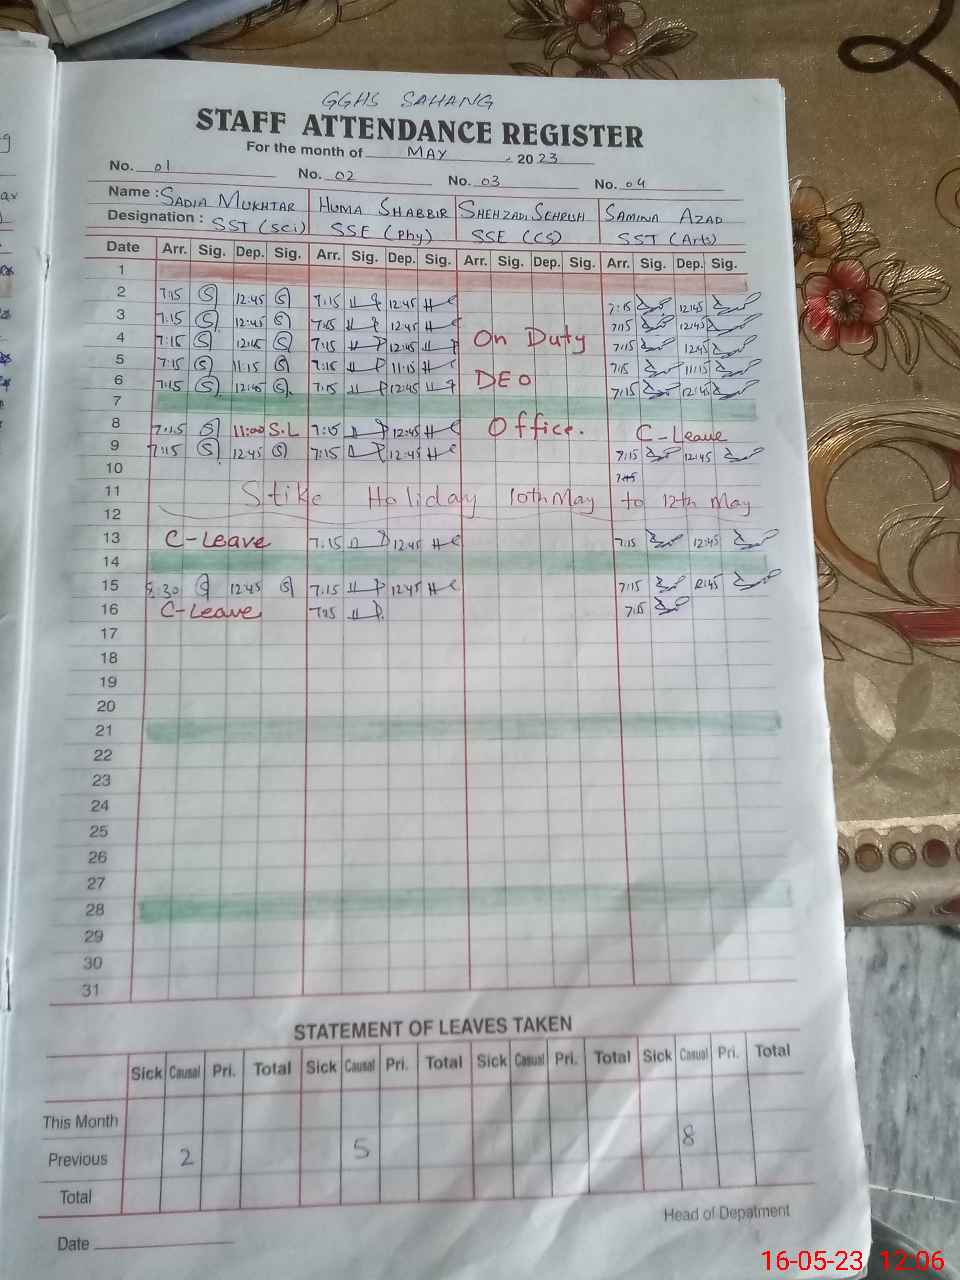 GGHS SAHANG
STAFF ATTENDANCE REGISTER
For the month of MAY 2023
No. 01 No. 02 No. 03 No. 04
Name : SADIA MUKHTAR HUMA SHABBIR SHEHZADI SEHRUH SAMINA AZAD
Designation : SST (Sci) SSE (Phy) SSE (CS) SST (Arts)
Date Arr. Sig. Dep. Sig. Arr. Sig. Dep. Sig. Arr. Sig. Dep. Sig. Arr. Sig. Dep. Sig.
1
2 7:15 S 12:45 S 7:15 12:45 7:15 12:45
3 7:15 S 12:45 S 7:15 12:45 7:15 12:45
4 7:15 S 12:45 S 7:15 12:45 On Duty 7:15 12:45
5 7:15 S 11:15 S 7:15 11:15 7:15 11:15
6 7:15 S 12:45 S 7:15 12:45 DEO 7:15 12:45
7
8 7:15 S 11:00 S.L 7:15 12:45 Office. C-Leave
9 7:15 S 12:45 S 7:15 12:45 7:15 12:45
10 7:15
11 Stike Holiday 10th May to 12th May
12
13 C-Leave 7:15 12:45 7:15 12:45
14
15 8:30 12:45 7:15 12:45 7:15 12:45
16 C-Leave 7:15 7:15
17
18
19
20
21
22
23
24
25
26
27
28
29
30
31
STATEMENT OF LEAVES TAKEN
Sick Causal Pri. Total Sick Causal Pri. Total Sick Causal Pri. Total Sick Causal Pri. Total
This Month
Previous 2 5 8
Total
Head of Depatment
Date
16-05-23 12:06